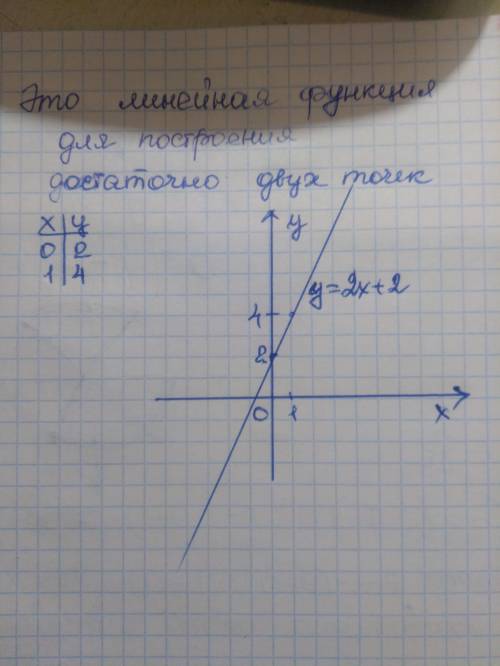 Это линейная функция
для построения
достаточно двух точек
x y
0 2
1 4
y
y=2x+2
4
2
0 1
x